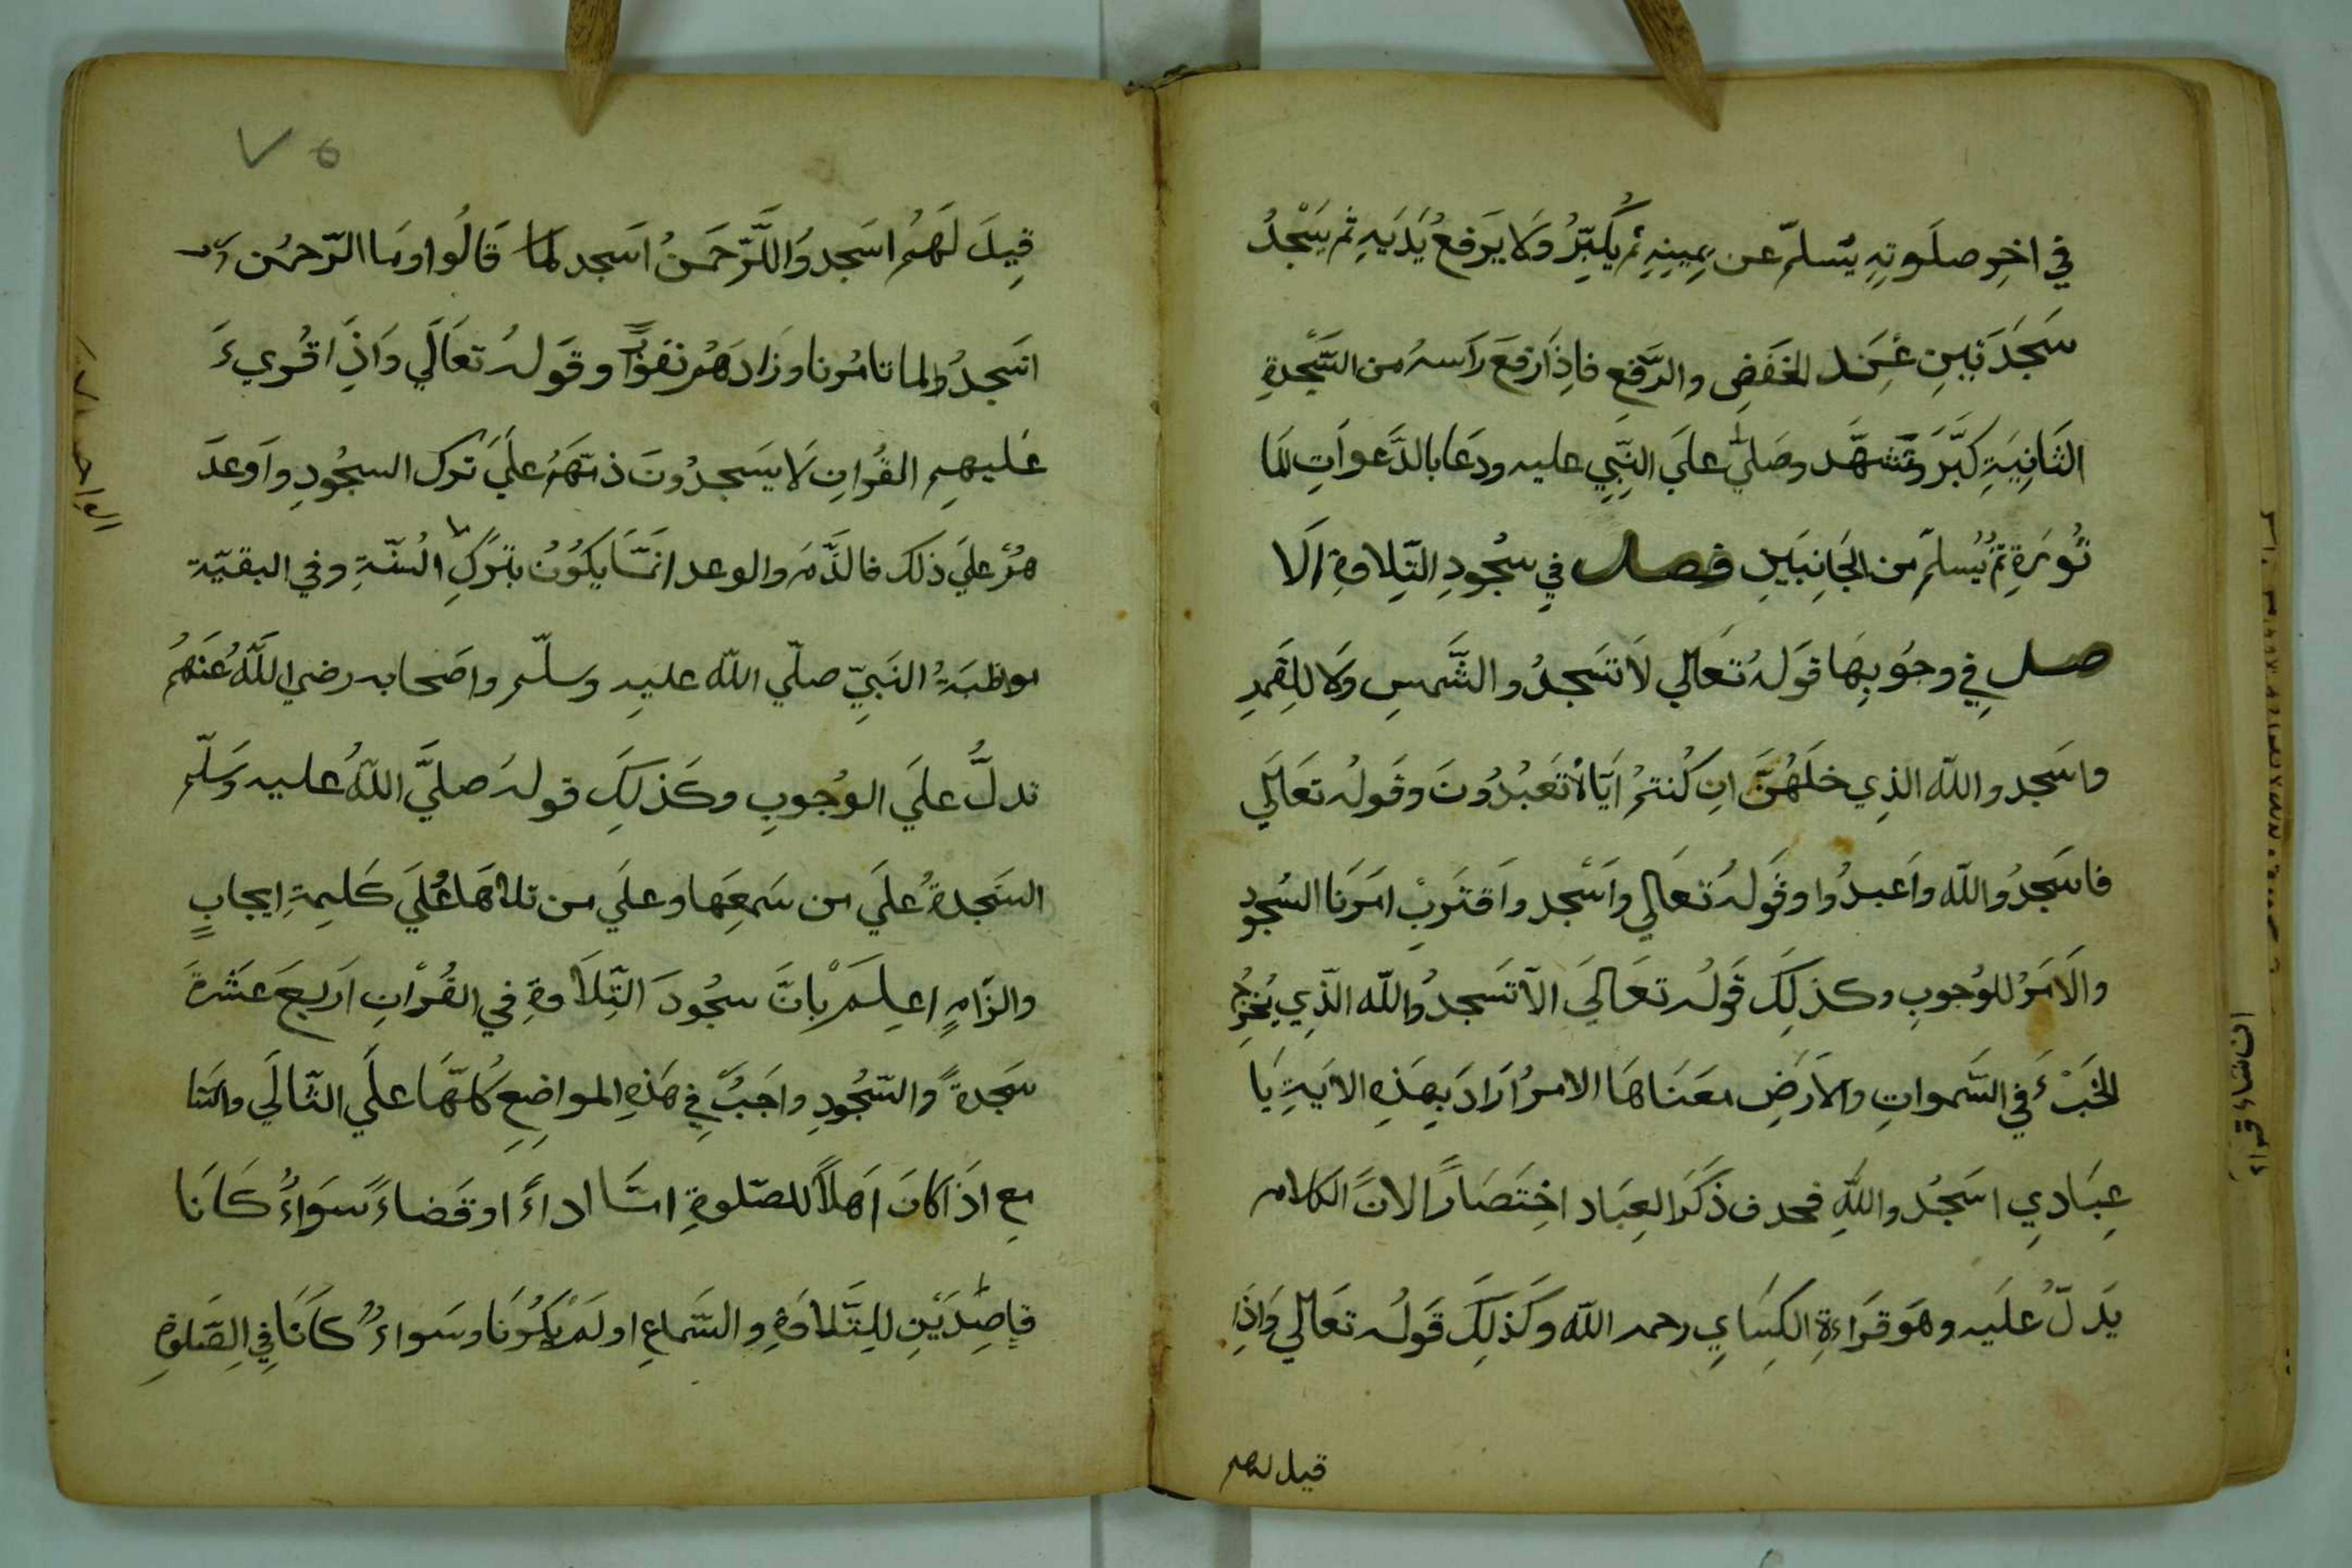 في اخِرِ صلَوتِهِ يُسلمّ عن يمِينِهِ ثم يُكَبِّرُ وَلا يَرفعُ يَدَيهِ ثم يَسْجُدُ
سَجَدَتَينِ عِندَ الخَفَضِ والرَّفعِ فاذِاَ ارَفَعَ رَاسهُ من السَّجدةِ
الثَانِيَةِ كَبَّرَ وَتشَهَّد وصَليّ علَي النِبّيِ عليه ودَعَا بالدَّعواَتِ المَا
ثُورَةِ ثمَّ يُسُلمّ من الجَانِبَينِ فصل في سجُودِ التِلاوةِ الَا
صل في وجُوبِهَا قَولهُ تَعَالي لاَ تَسَجدُوا لشَّمسِ وَلا لِلقَمَرِ
واسَجد والله الذِي خلَهُنَّ انِ كُنتمُ ايَّاهُ تَعَبُدُونَ وقَولُه تعَالَي
فاسَجدُوالله وَاعَبدُوا وقَولُه تَعَالي وَاسَجد وَاقتَرَبِ امَرَنا السُجودِ
والَامَرُ للوُجوبِ وكذلِكَ قَولُه تعَالَيَ الاّ تَسَجدُوالله الذِّي يُخرِجُ
الخَبْءَ في السَّمواتِ والاَرَضِ معَنَاهَا الامرُ ارَادَ بِهَذِهِ الايَةِ يَا
عِبَادِي اسَجُد واللهِ فحدف ذَكَرَ العِبَاد اخِتَصَارًا لانَّ الكلامَ
يَدلّ علَيه وهَو قرَاءةِ الكِسَايِ رحمه الله وكَذلِكَ قَولُه تعَالي وَاِذَا
قيل لهم
ان شاء قراء
٧٥
قِيلَ لَهَمُ اسَجدوُا لَلرَّحَمنُ اسَجد لما قَالُوا ومَا الرّحمُن
انَسجدُ لما تامُرنا وزَادَهُم نفوُرًا وقَولهُ تعَالَي وَاذَِا قُريءَ
عَليهِم القُرانِ لاَ يسَجدوُنَ ذمّهَمُ علَيَ تَرك السجُودِ واَوعَدَ
همُ علَي ذلك فالذَّمَ والوعد انمَّا يكَوُنُ بتَركِ السُنّةِ وفي البقيّة
مواظبَةُ النَبِيّ صلّي الله عليهِ وسلّم واصَحابه رضي اللّهَُ عَنهَمُ
تدلُّ علَي الوُجوبِ وكَذلِكَ قولهُ صليَّ اللهُ عليه وَسَلّم
السَجدةُ علَيَ من سَمعِهَا وعلَي من تلاهَا عَلَيَ كلَيمِةِ ايجابٍ
والزَامٍ اعِلَمَ بِانَّ سجُودَ التِّلَاوةِ في القُرْانِ ارَبعَ عَشَرةَ
سَجدةً وَّالسّجُودِ واجَبٌ في هَذِهِ المواضِعِ كُلهّاَ علَي التَّالَي والسَّا
معِ اذَا كانَ اَهلاً للصّلوةِ امَّا اداءً اوقَضاءً سَوَاءٌ كَانَا
قاصِدَيْنِ للِتَّلاوَةِ والسَّماعِ اولَمَ يكَوُنَا وسَواءٌ كانَا في الِصّلوةِ
الواحد